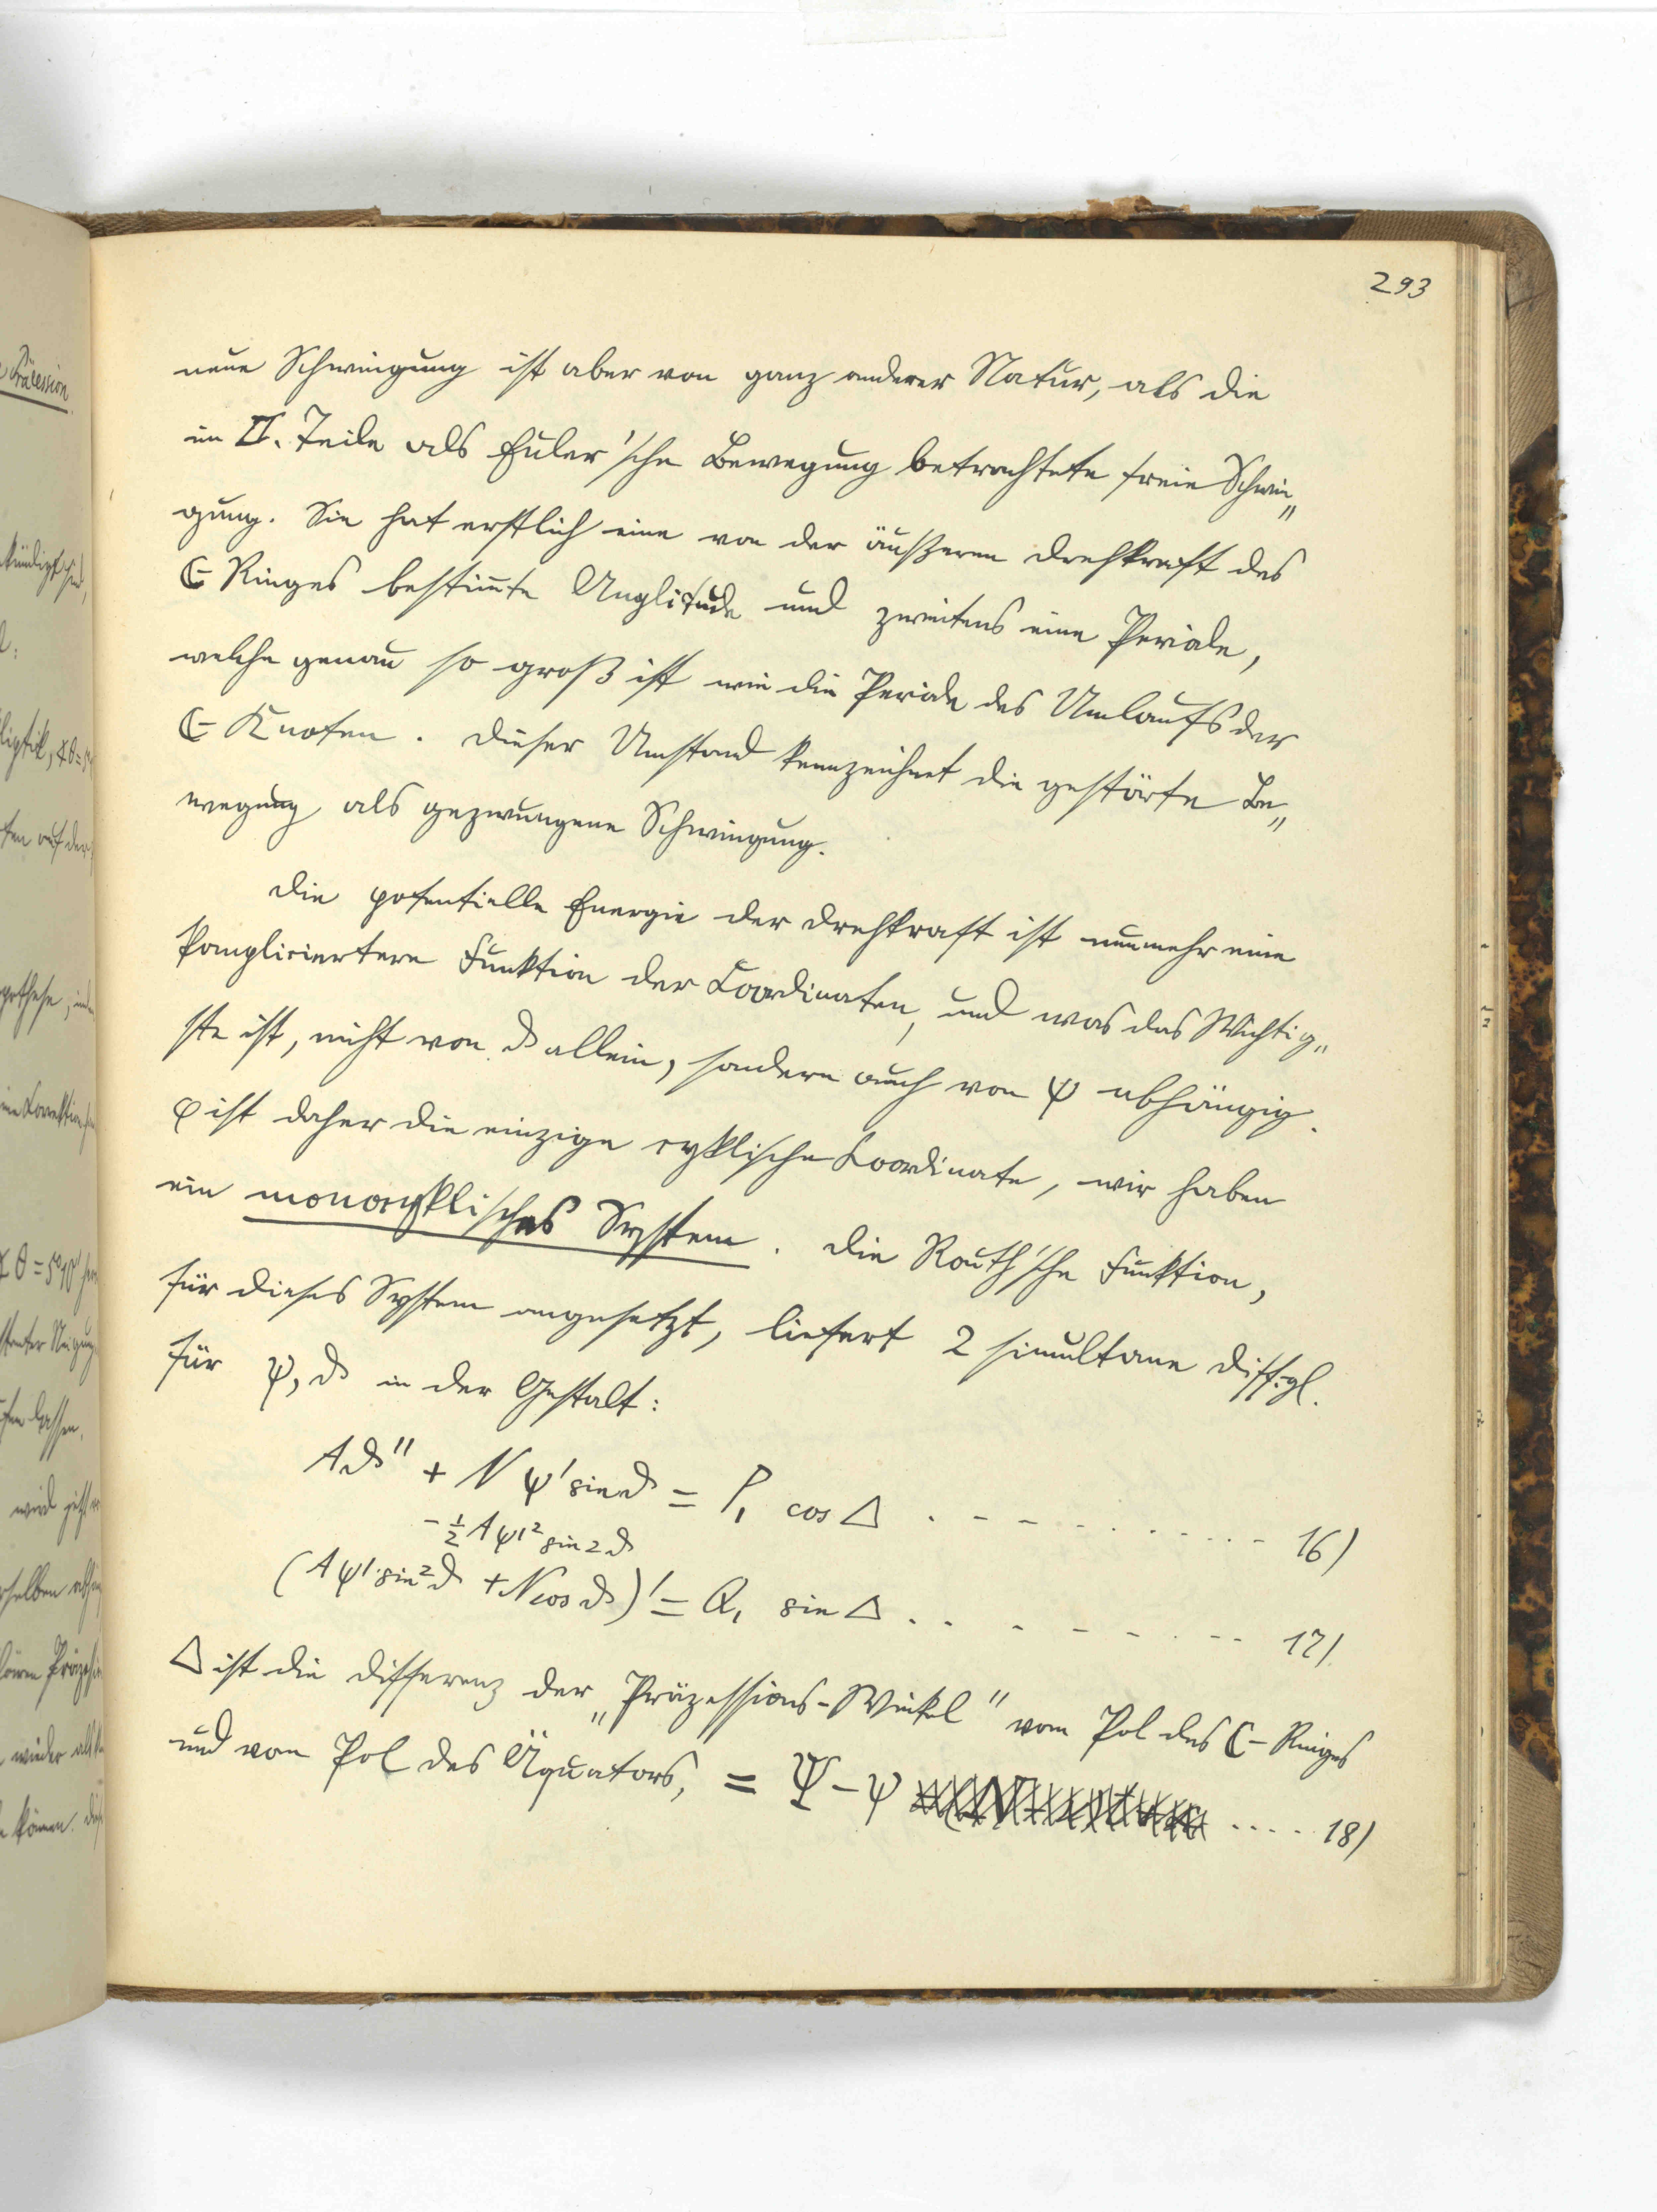 293
neue Schwingung ist aber von ganz anderer Natur, als die
im II. Teile als Euler'sche Bewegung betrachtete freie Schwin„
gung. Sie hat erstlich eine von der äußeren Drehkraft des
☾ Ringes bestim̄te Amplitude und zweitens eine Periode,
welche genau so groß ist wie die Periode des Umlaufs der
☾- Knoten. Dieser Umstand kennzeichnet die gestörte Be„
wegung als gezwungene Schwingung.
Die potentielle Energie der Drehkraft ist nunmehr eine
kompliciertere Funktion der Coordinaten, und was das Wichtig„
ste ist, nicht von ϑ allein, sondern auch von ψ abhängig.
φ ist daher die einzige cyklische Coordinate, wir haben
ein monocyklisches System. Die Routh'sche Funktion,
für dieses System angesetzt, liefert 2 simultane Diff.gl.
für ψ, ϑ in der Gestalt:
Aϑ'' + N ψ' sin ϑ = P₁ cos Δ . - - - . . . . . . - 16)
- ½ A ψ'² sin 2ϑ
(Aψ' sin²ϑ + N cos ϑ)' = Q₁ sin Δ . . - - - - . - - 17)
Δ ist die Differenz der „Präzessions-Winkel" vom Pol des ☾- Ringes
und vom Pol des Äquators, = Ψ - ψ .... 18)
Präcession
kündigt
liptik, ∢θ=5°
auf der
pothese,
∢θ = 5°
lassen,
wird jetzt
selben
wieder
können.